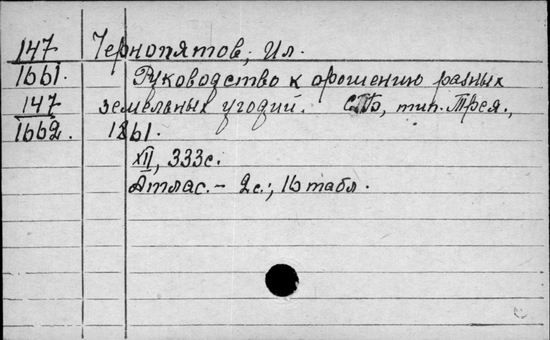 147 Чернопятов, Ил.
1661. Руководство к орошению разных
147 земельных угодий. СПб, тип. Трея.,
1662. 1861.
XII, 333с.
Атлас. - 2с.; 16 табл.